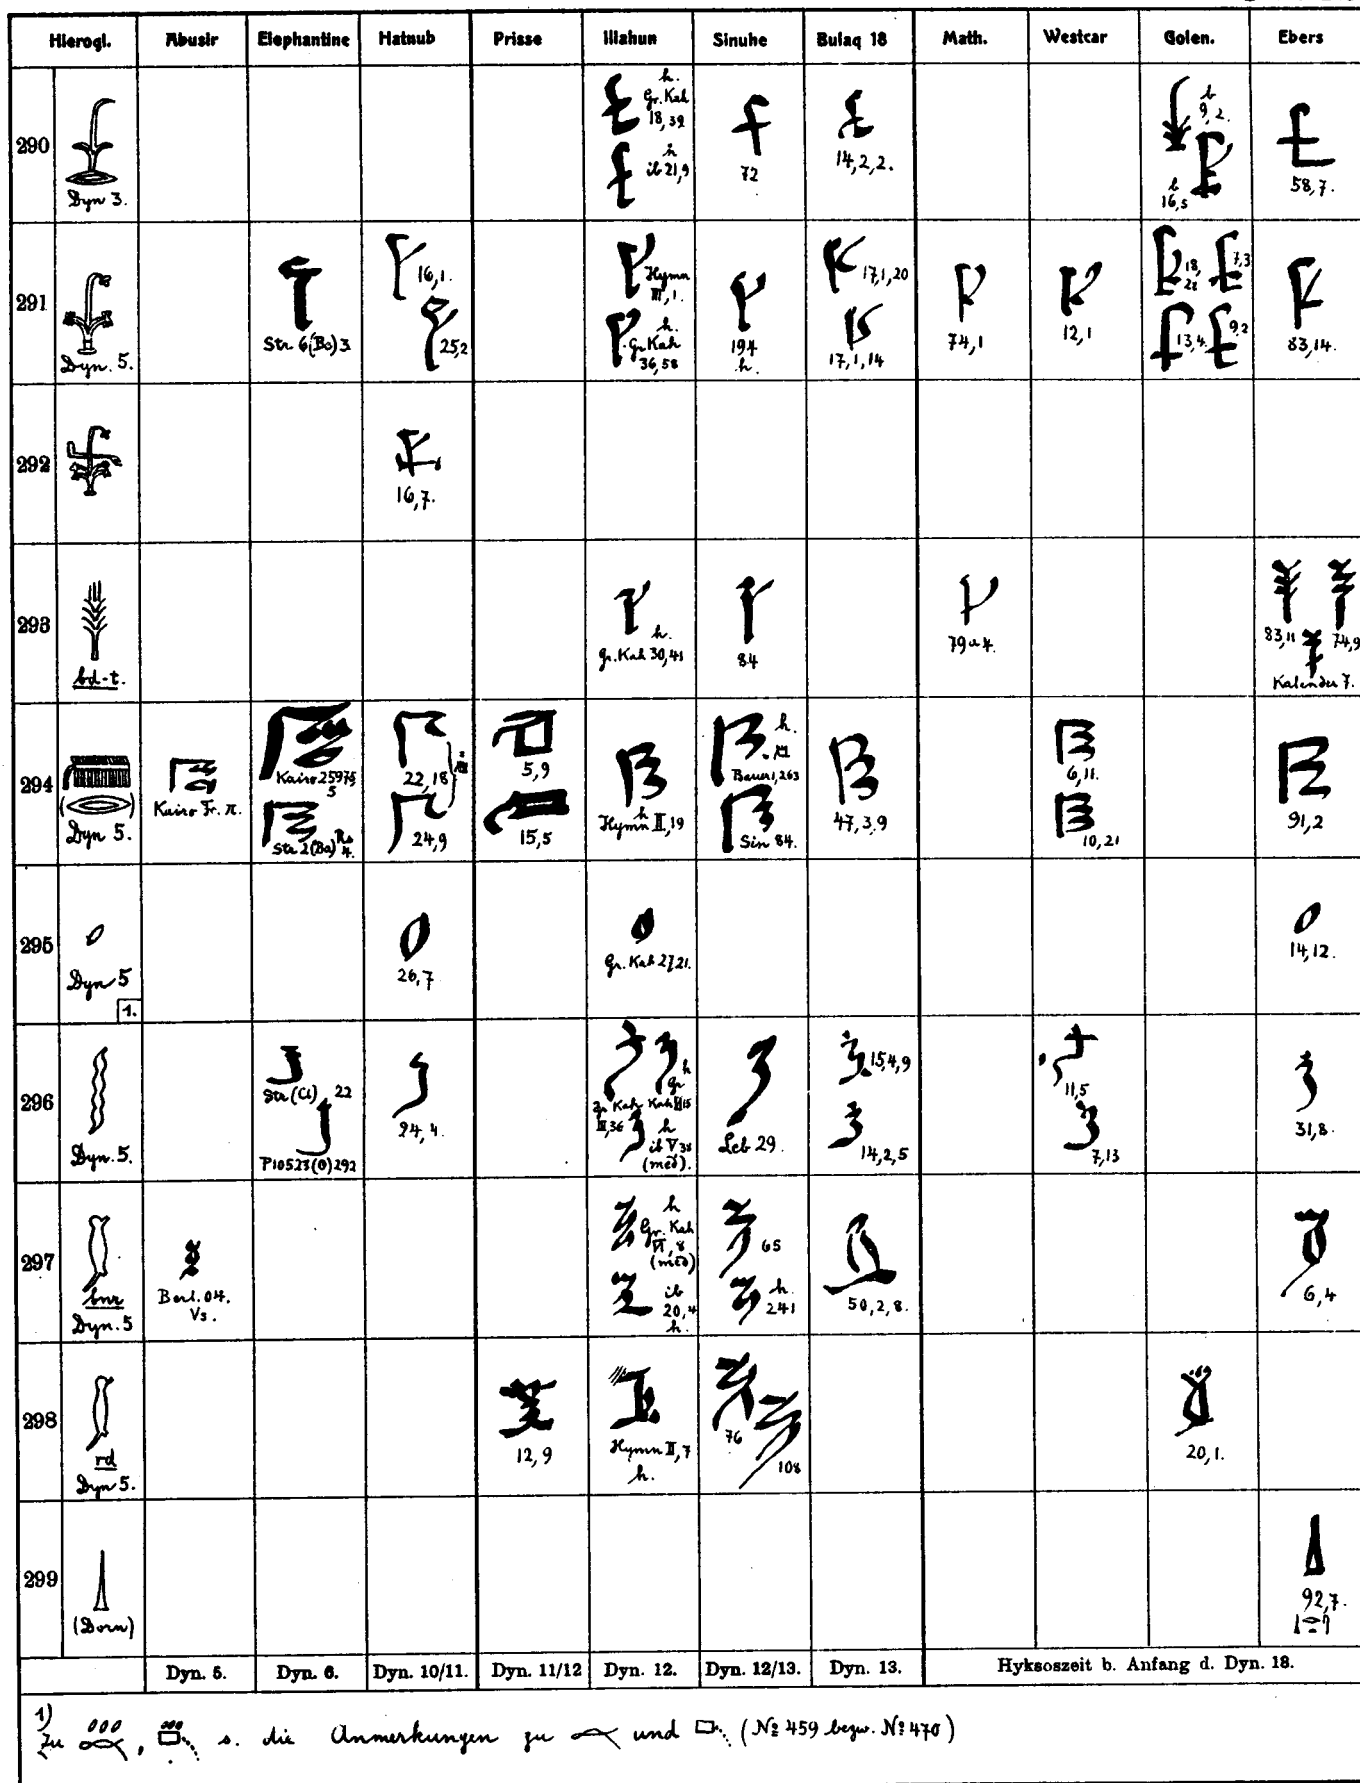 Hierogl. Abusir Elephantine Hatnub Prisse Illahun Sinuhe Bulaq 18 Math. Westcar Golen. Ebers
290
Dyn 3.
h.
Gr. Kah
18,39
h
ib 21,9
72
14,2,2.
b
9,2.
b
16,5
58,7.
291
Dyn. 5.
Str. 6(Bo)3
16,1.
25,2
Hymn
III,1.
h.
Gr. Kah
36,58
194
h.
17,1,20
17,1,14
74,1
12,1
18,
7,3
13,4.
9,2
83,14.
292
16,7.
293
bd-t.
h.
Gr. Kah 30,41
84
83,11
74,9
Kalender 7.
294
Dyn 5.
Kairo Fr. π.
Kairo 25975
5
Str 2(Ba) Rs
4.
22,18
24,9
5,9
15,5
h
Hymn II,19
h.
Bauer 1,263
Sin 84.
47,3,9
6,11.
10,21
91,2
295
Dyn 5
1.
26,7
Gr. Kah 27,21.
14,12.
296
Dyn. 5.
Str (Cl) 22
P10523(0)292
24,4.
Gr Kah
III,36
h
gr
Kah
h
ib V 38
(med).
Leb 29.
15,4,9
14,2,5
11,5
7,13
31,8.
297
bnr
Dyn. 5
Berl. 04.
Vs.
h
Gr. Kah
VI,8
(med)
ib
20,4
h.
65
h.
241
50,2,8.
6,4
298
rd
Dyn 5.
12,9
Hymn II,7
h.
76
108
20,1.
299
(Dorn)
92,7.
Dyn. 5. Dyn. 6. Dyn. 10/11. Dyn. 11/12 Dyn. 12. Dyn. 12/13. Dyn. 13. Hyksoszeit b. Anfang d. Dyn. 18.
1)
Zu , s. die Anmerkungen zu und (Nº 459 bezw. Nº 470)